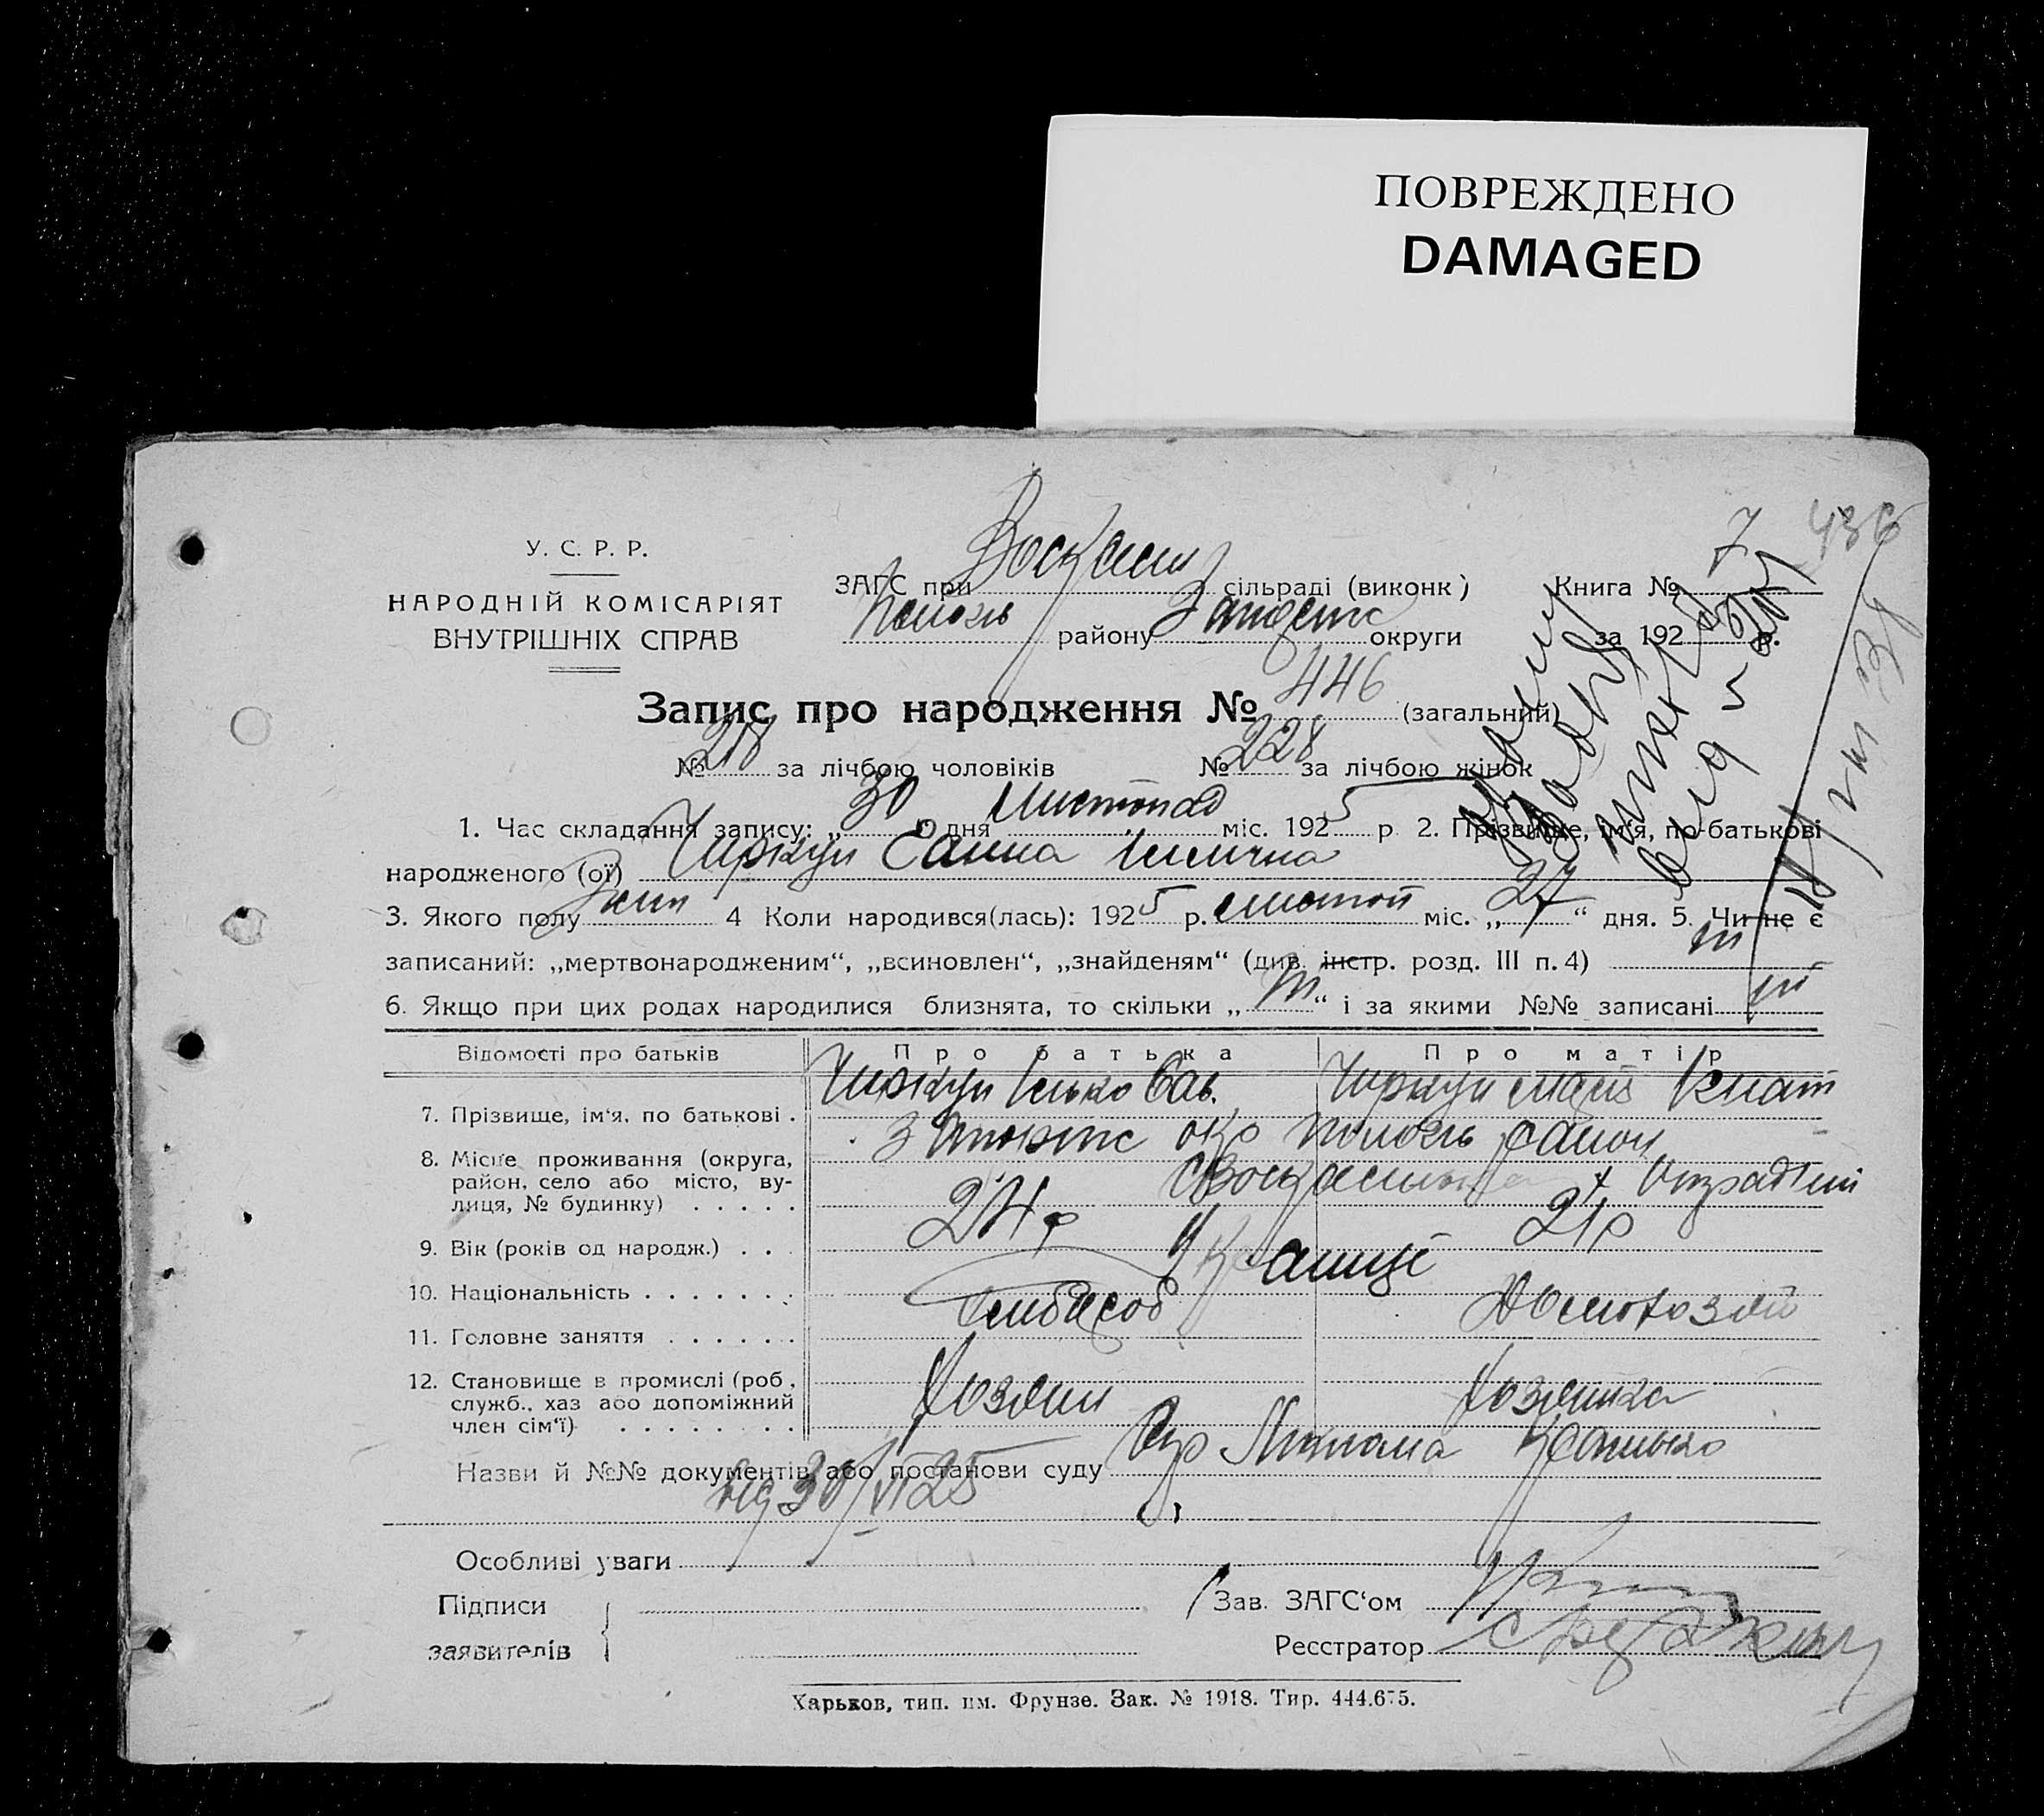 ПОВРЕЖДЕНО
DAMAGED
436
У. С. Р. Р.
НАРОДНІЙ КОМІСАРІЯТ
ВНУТРІШНІХ СПРАВ
ЗАГС при сільраді (виконк)
району округи
Книга № 7
за 192 р.
Запис про народження № 446 (загальний)
№ 218 за лічбою чоловіків № 228 за лічбою жінок
1. Час складання запису: „ 30 “ дня Листопад міс. 1925 р 2. Прізвище, ім'я, по-батькові
народженого (ої) Чиркун Ганна
3. Якого полу жін 4 Коли народився(лась): 1925 р. листоп міс. „ 27 “ дня. 5. Чи не є
записаний: „мертвонародженим“, „всиновлен“, „знайденям“ (див. інстр. розд. III п. 4) ні
6. Якщо при цих родах народилися близнята, то скільки „ ні “ і за якими №№ записані ні
Відомості про батьків Про батька Про матір
7. Прізвище, ім'я, по батькові . Чиркун Ілько Сав. Чиркун Марія Ігнат
8. Місце проживання (округа, район, село або місто, вулиця, № будинку) . . . . . окр район
9. Вік (років од народж.) . . . 24 р 21 р
10. Національність . . . . . . . Україньці
11. Головне заняття . . . . . . Хлібороб Домохозяй
12. Становище в промислі (роб., служб., хаз або допоміжний член сім'ї) . . . . . . . . Хозяин Хозяйка
Назви й №№ документів або постанови суду
від 30/XI 25
Особливі уваги
Підписи
заявителів
Зав. ЗАГС'ом
Реєстратор
Харьков, тип. им. Фрунзе. Зак. № 1918. Тир. 444.675.